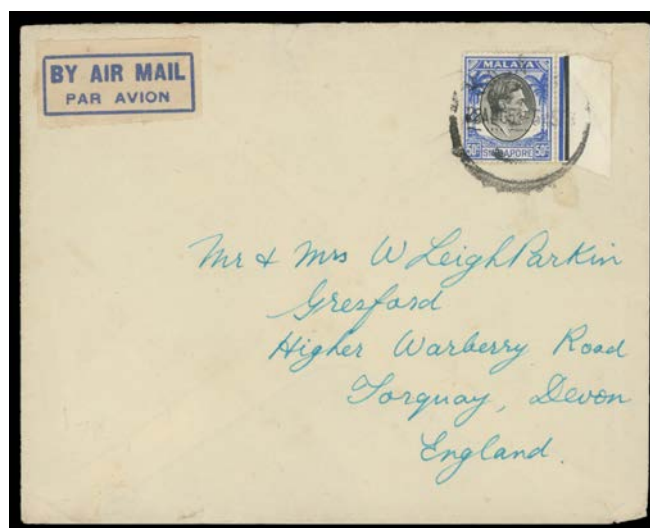 BY AIR MAIL
PAR AVION
MALAYA
50c SINGAPORE 50c
Mr & Mrs W Leigh Parkin
Gresford
Higher Warberry Road
Torquay, Devon
England.